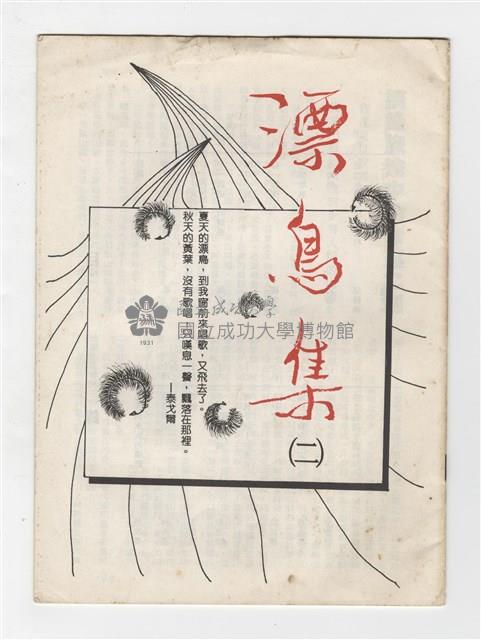 漂鳥集
(二)
夏天的漂鳥，到我窗前來唱歌，又飛去了。
秋天的黃葉，沒有歌唱，只嘆息一聲，飄落在那裡。
—泰戈爾
國立成功大學
國立成功大學博物館
1931